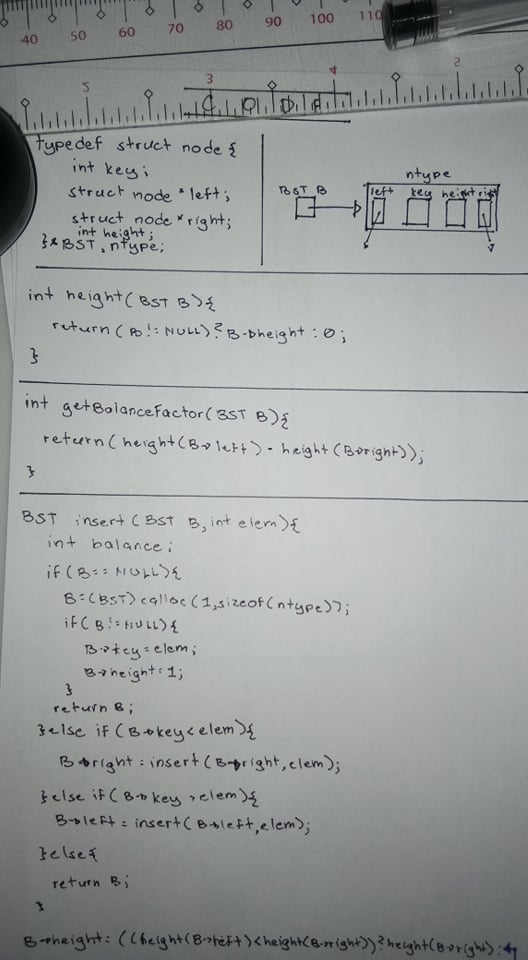 40 50 60 70 80 90 100 110
5 3 4 2
CODE
typedef struct node {
int key;
struct node *left;
struct node *right;
int height;
}*BST, ntype;
BST B
ntype
left key height right
int height(BST B){
return(B!=NULL)?B->height:0;
}
int getBalanceFactor(BST B){
return(height(B->left)-height(B->right));
}
BST insert(BST B, int elem){
int balance;
if(B==NULL){
B=(BST)calloc(1,sizeof(ntype));
if(B!=NULL){
B->key=elem;
B->height=1;
}
return B;
}else if(B->key<elem){
B->right=insert(B->right,elem);
}else if(B->key>elem){
B->left=insert(B->left,elem);
}else{
return B;
}
B->height=((height(B->left)<height(B->right))?height(B->right):